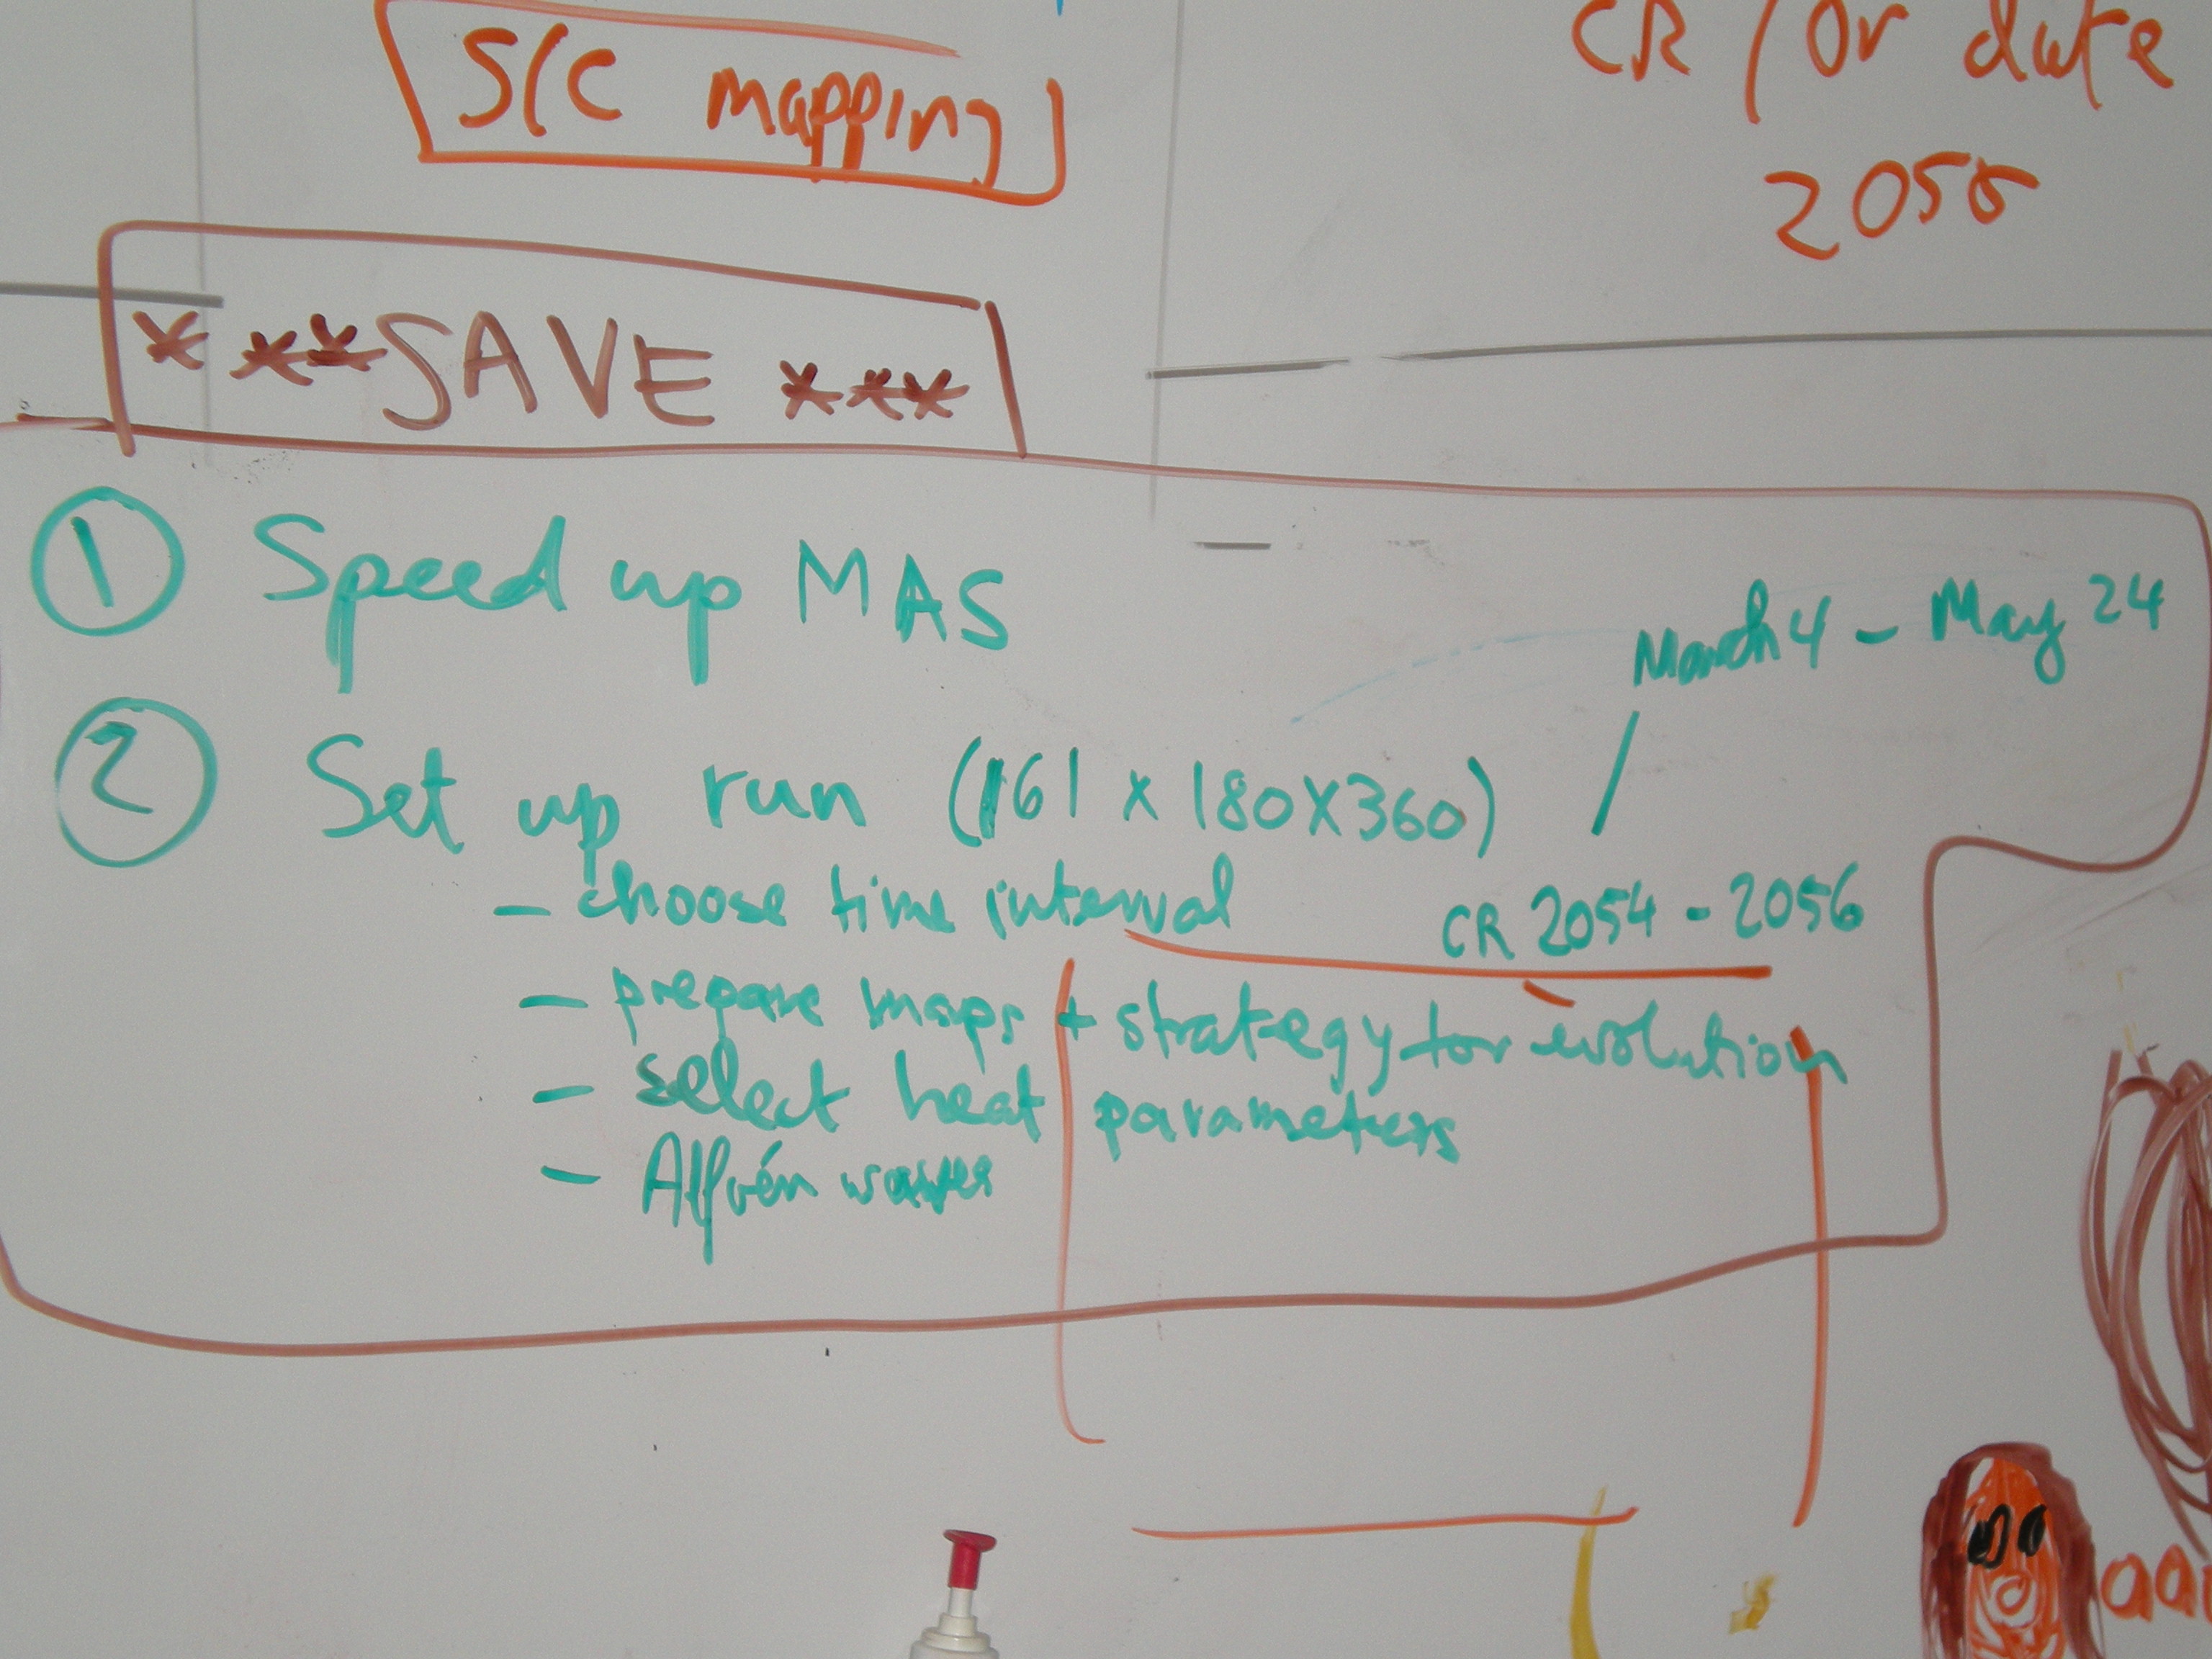 S/C mapping
CR / or date
2055
***SAVE ***
1 Speed up MAS
March 4 - May 24
2 Set up run (161 x 180 x 360) /
- choose time interval CR 2054 - 2056
- prepare maps + strategy for evolution
- select heat parameters
- Alfvén waves